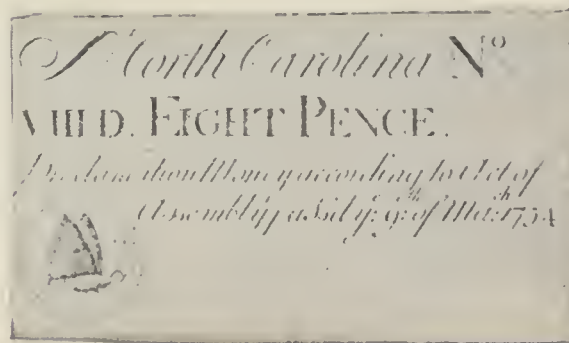 North Carolina Nº
VIII D. EIGHT PENCE.
Proclamation Money according to Act of
Assembly passed yᵉ 9ᵗʰ of Mar:ᶜʰ 1754